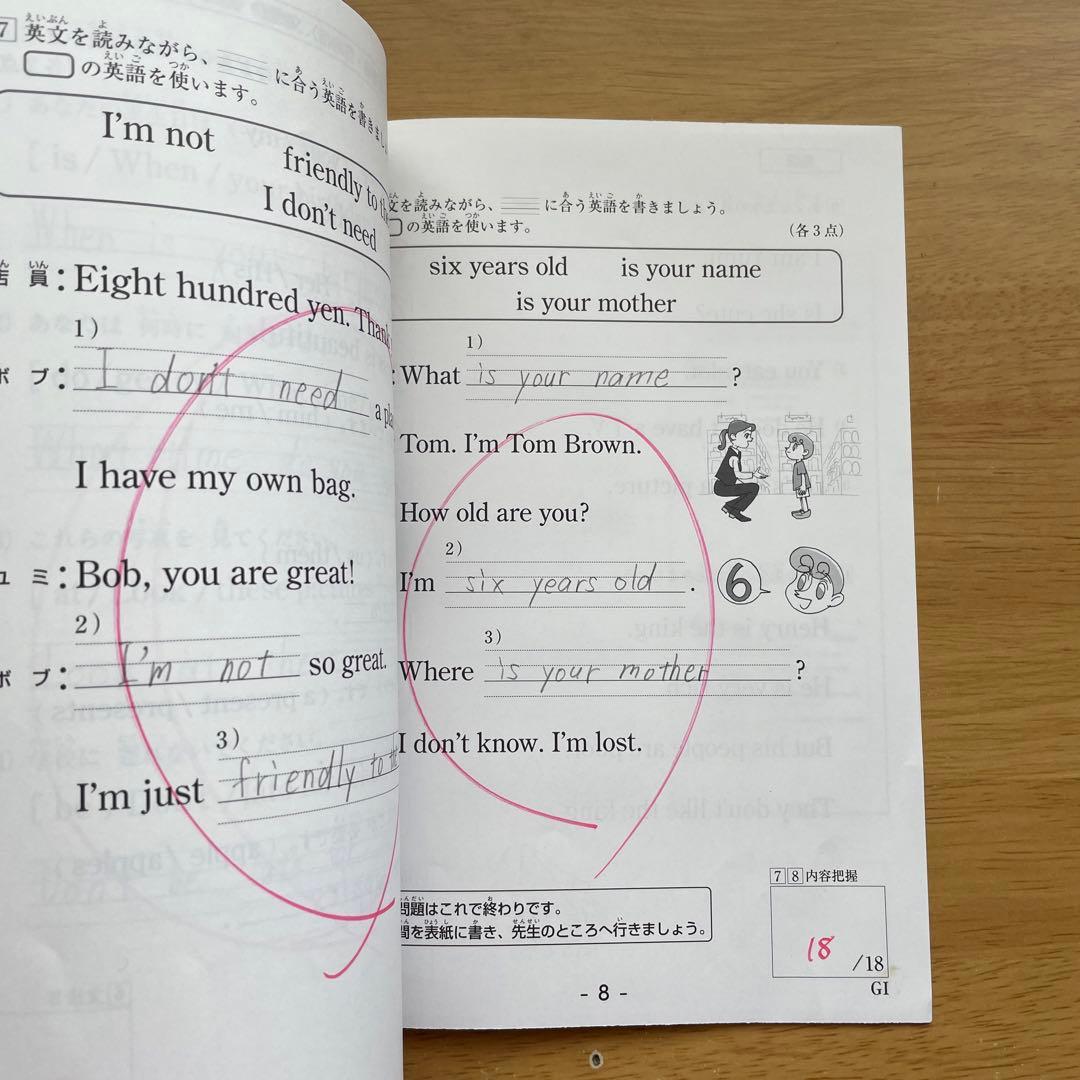 7 英文を読みながら、 に合う英語を書きまし
の英語を使います。
I'm not
friendly to
I don't need
員：Eight hundred yen. Thank
1)
ボブ：I don't need a pla
I have my own bag.
ユミ：Bob, you are great!
2)
ボブ：I'm not so great.
3)
I'm just friendly to the
文を読みながら、 に合う英語を書きましょう。
の英語を使います。
（各3点）
six years old is your name
is your mother
1)
：What is your name ?
Tom. I'm Tom Brown.
How old are you?
2)
I'm six years old .
6
3)
Where is your mother ?
I don't know. I'm lost.
問題はこれで終わりです。
間を表紙に書き、先生のところへ行きましょう。
7 8 内容把握
18 /18
GI
- 8 -